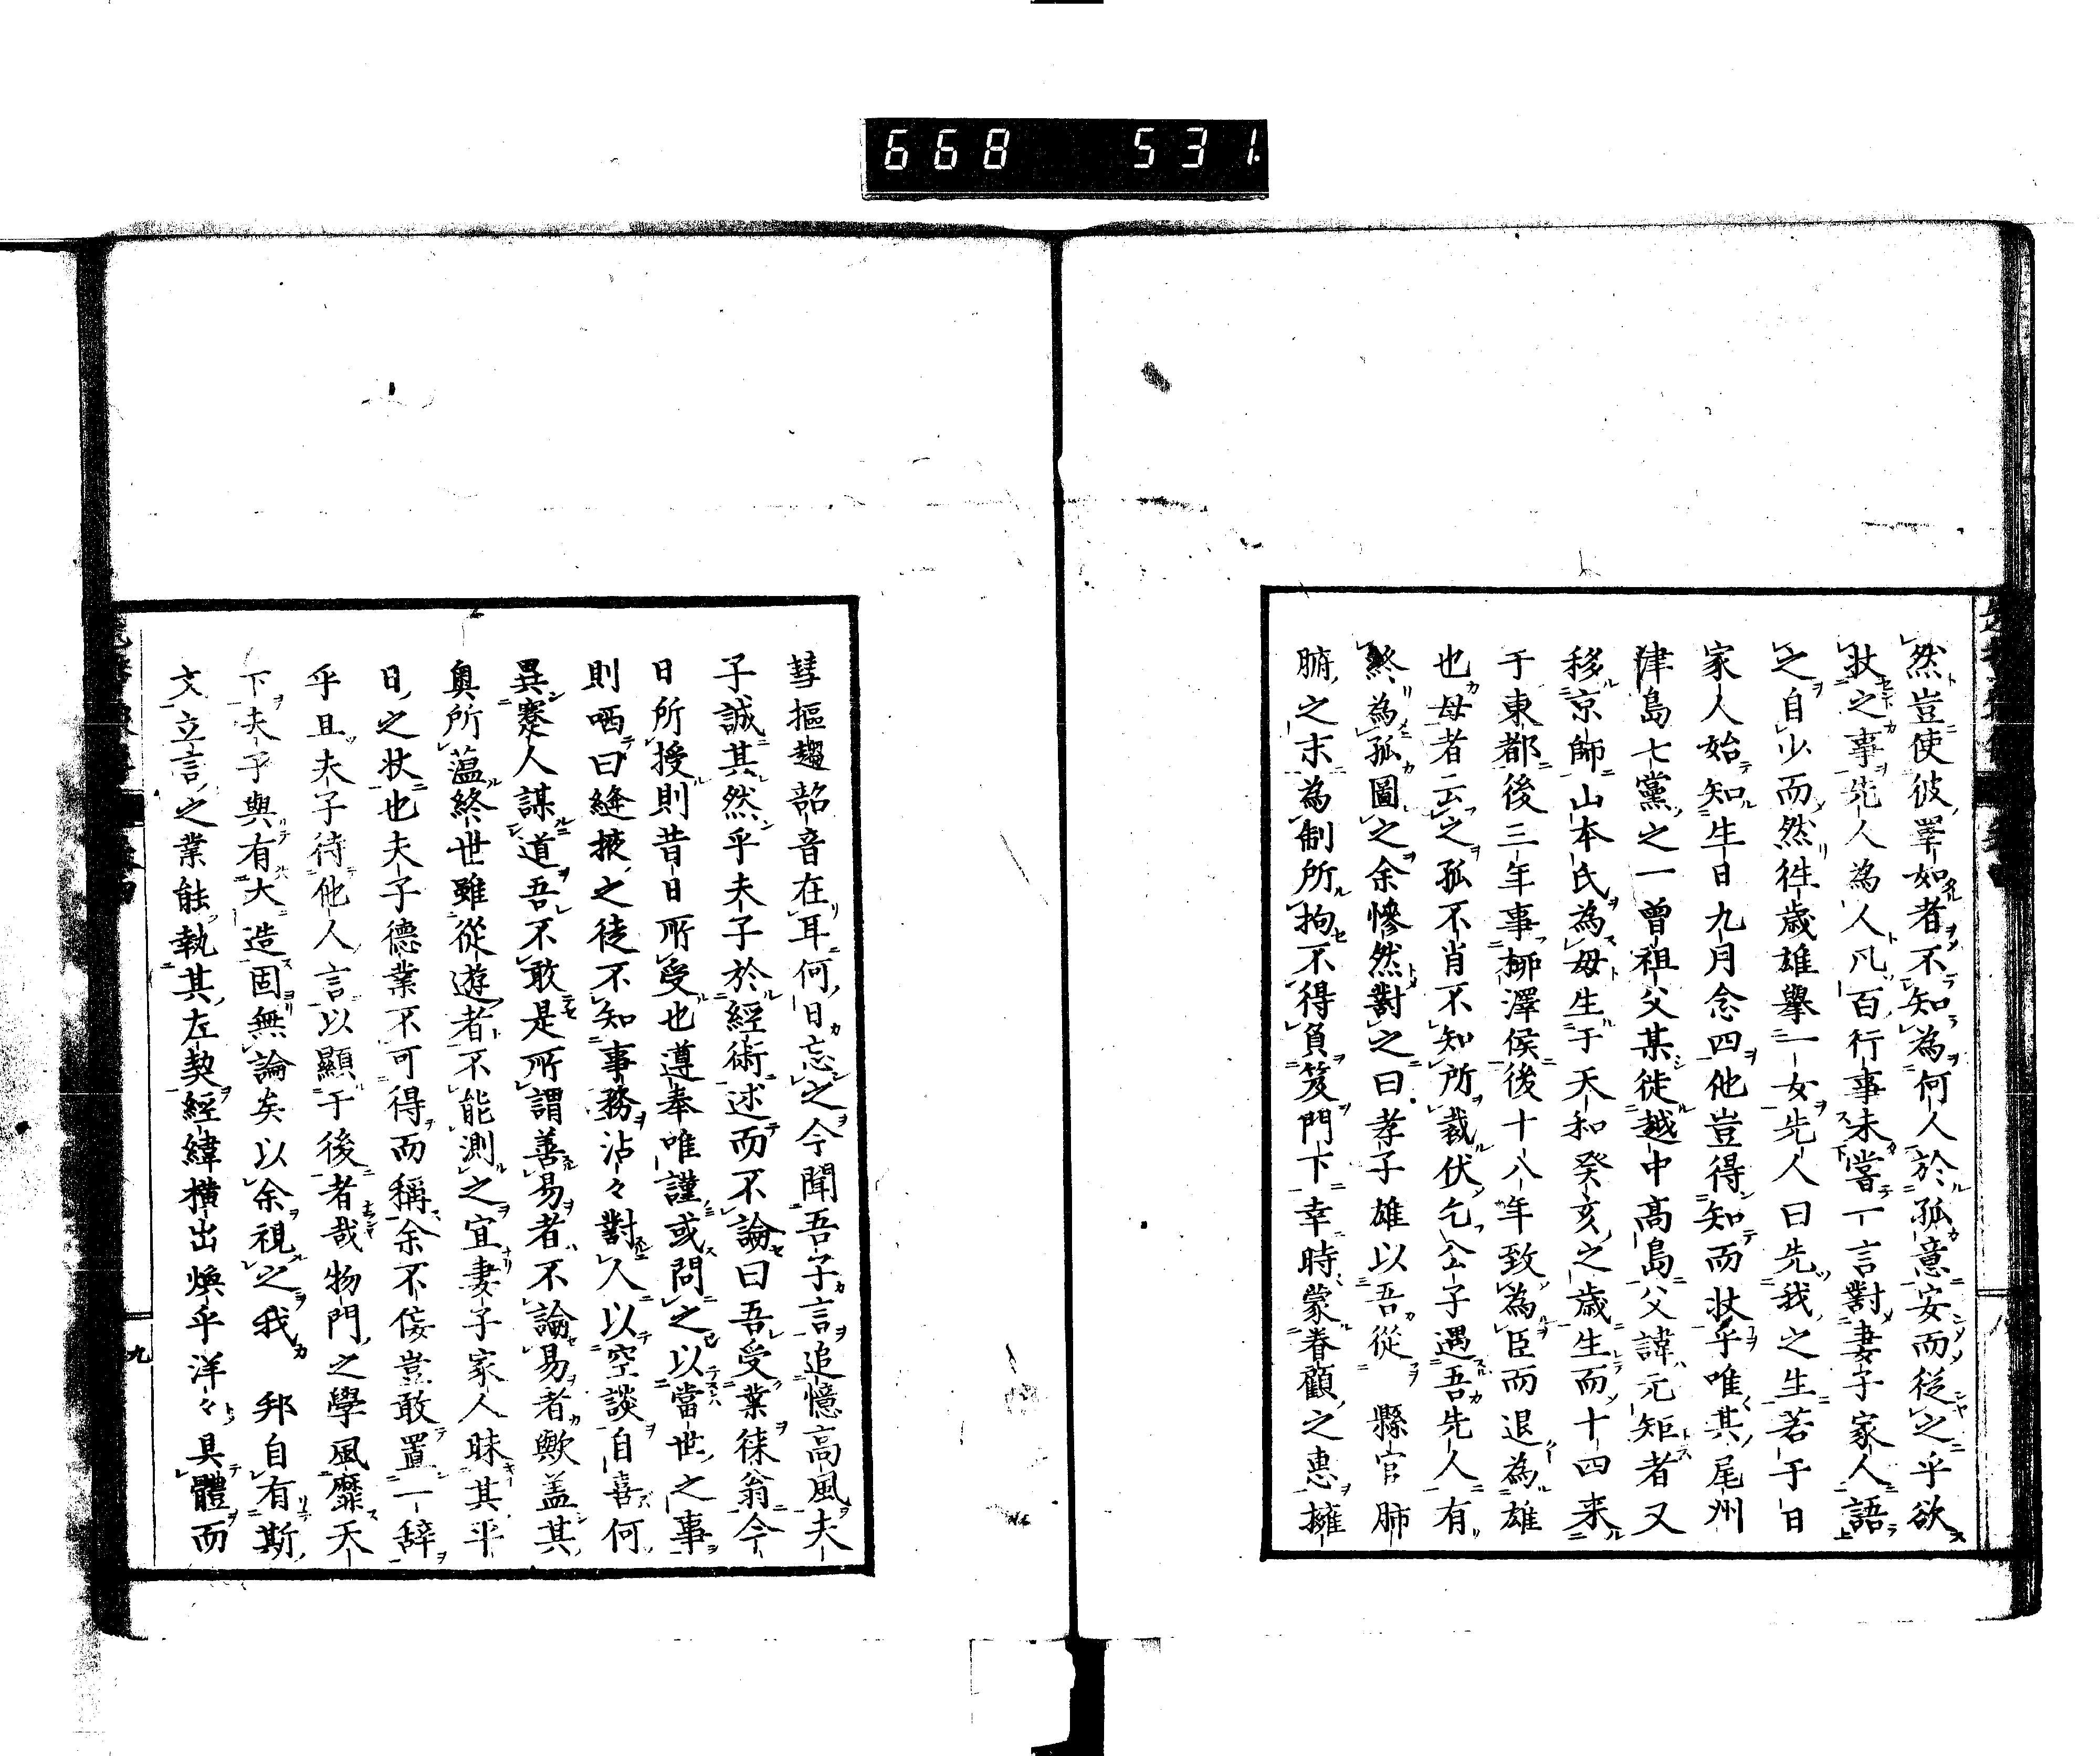 668 531
然豈使彼睪如者不知為何人於孤意安而從之乎欲
狀之事先人為人凡百行事未嘗一言對妻子家人語
之自少而然徃歲雄擧一女先人曰先我之生若干日
家人始知生日九月念四他豈得知而狀乎唯其尾州
津島七黨之一曾祖父某徙越中高島父諱元矩者又
移京師山本氏為母生于天和癸亥之歲生而十四来
于東都後三年事栁澤侯後十八年致為臣而退為雄
也母者云之孤不肖不知所裁伏乞公子遇吾先人有
終為孤圖之余慘然對之曰孝子雄以吾從 縣官肺
腑之末為制所拘不得負笈門下幸時蒙眷顧之惠擁
彗摳趨韶音在耳何日忘之今聞吾子言追憶高風夫
子誠其然乎夫子於經術述而不論曰吾受業徠翁今
日所授則昔日所受也遵奉唯謹或問之以當世之事
則哂曰縫掖之徒不知事務沾々對人以空談自喜何
異寮人謀道吾不敢是所謂善易者不論易者歟盖其
奥所薀終世雖從遊者不能測之宜妻子家人昧其平
日之狀也夫子德業不可得而稱余不侫豈敢置一辭
乎且夫子待他人言以顯于後者哉物門之學風靡天
下夫子與有大造固無論矣以余視之我 邦自有斯
文立言之業能執其左契經緯橫出煥乎洋々具體而
八
九